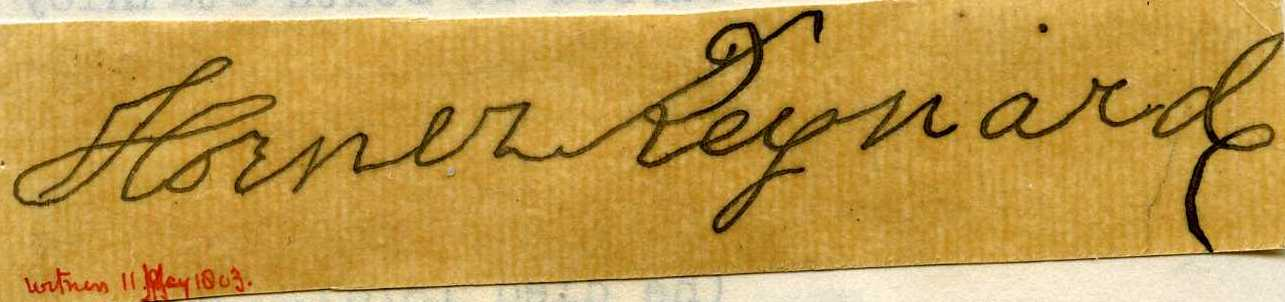 Horner Reynard
witness 11 May 1803.